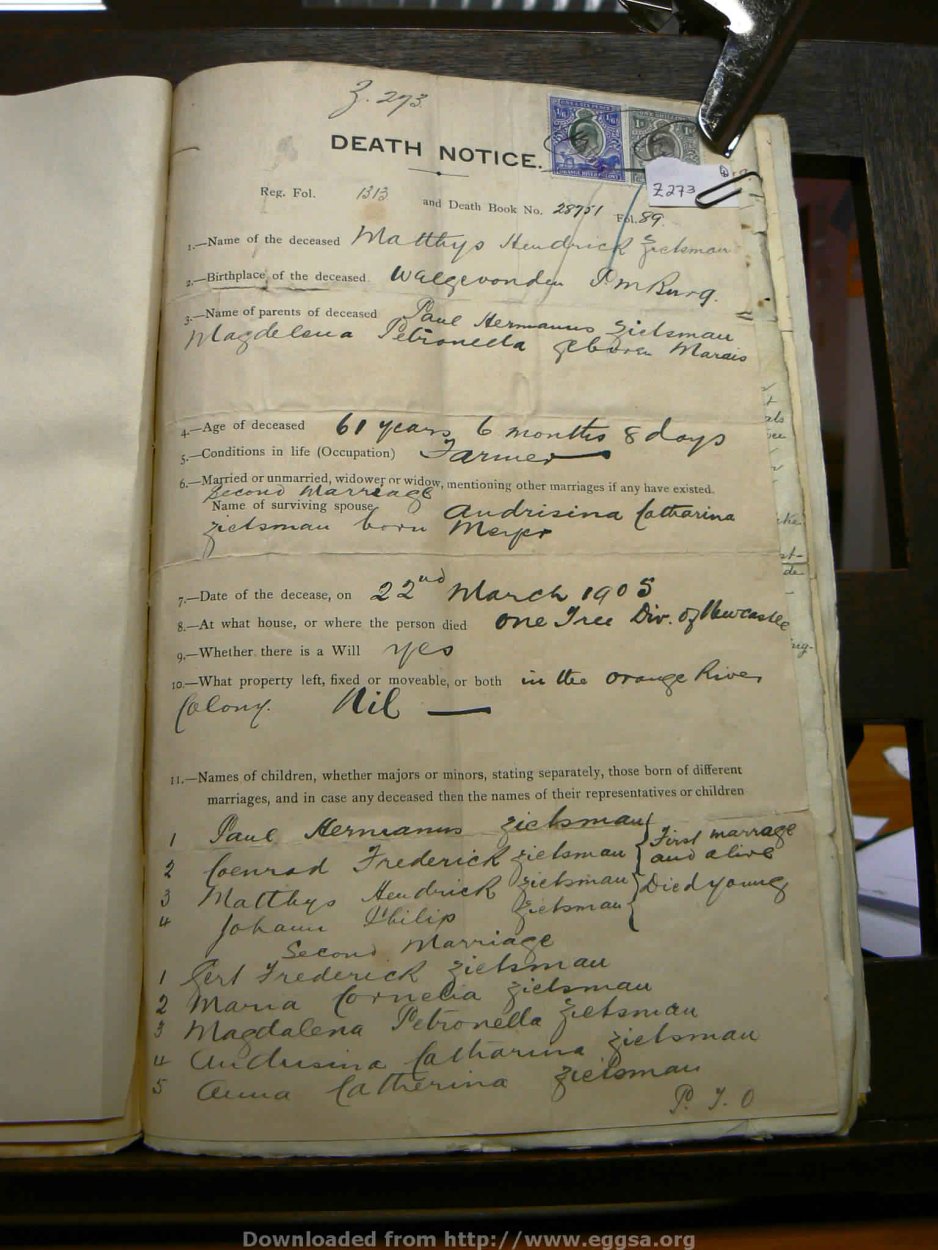 Z. 273.
DEATH NOTICE.
ORANGE RIVER COLONY
Z 273
Reg. Fol. 1313 and Death Book No. 28751 Fol. 89.
1.—Name of the deceased Matthys Hendrick Zietsman
2.—Birthplace of the deceased. Walgevonden P.m Burg.
3.—Name of parents of deceased Paul Hermanus Zietsman
Magdelena Petronella geboren Marais
4.—Age of deceased 61 years 6 months 8 days
5.—Conditions in life (Occupation) Farmer
6.—Married or unmarried, widower or widow, mentioning other marriages if any have existed.
Second Marriage
Name of surviving spouse Andrisina Catharina
Zietsman born Meyer
7.—Date of the decease, on 22nd March 1905
8.—At what house, or where the person died One Tree Div. of Newcastle
9.—Whether there is a Will yes
10.—What property left, fixed or moveable, or both in the Orange River
Colony. Nil —
11.—Names of children, whether majors or minors, stating separately, those born of different
marriages, and in case any deceased then the names of their representatives or children
1 Paul Hermanus Zietsman { First marrage
2 Coenrad Frederick Zietsman } and alive
3 Matthys Hendrick Zietsman } Died young
4 Johann Philip Zietsman {
Second Marriage
1 Gert Frederick Zietsman
2 Maria Cornelia Zietsman
3 Magdalena Petronella Zietsman
4 Andrisina Catharina Zietsman
5 Anna Catherina Zietsman
P. T. O
Downloaded from http://www.eggsa.org